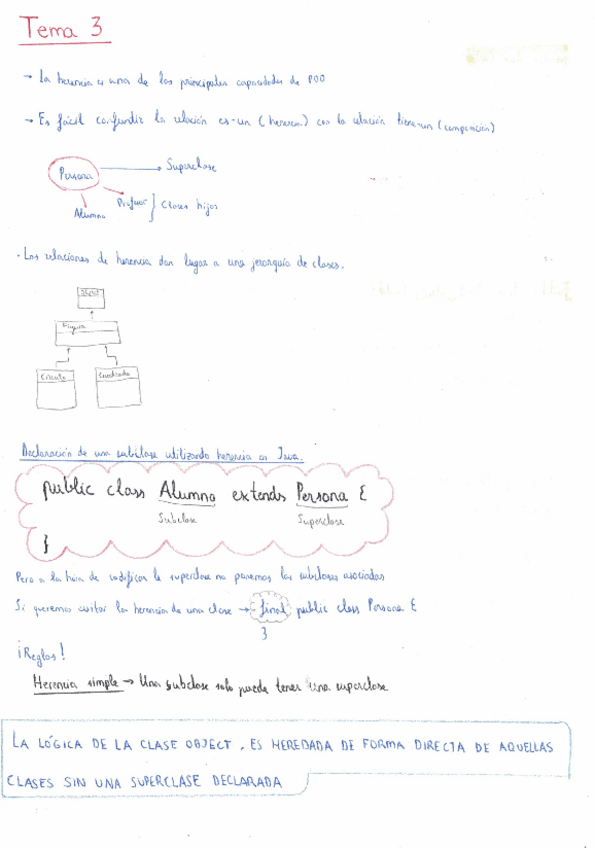 Tema 3
→ La herencia es una de las principales capacidades de POO
→ Es fácil confundir la relación es-un (herencia) con la relación tiene-un (composición)
Persona → Superclase
Profesor } Clases hijas
Alumno
· Las relaciones de herencia dan lugar a una jerarquía de clases.
Object
Figura
Círculo Cuadrado
Declaración de una subclase utilizando herencia en Java.
public class Alumno extends Persona {
Subclase Superclase
}
Pero a la hora de codificar la superclase no ponemos las subclases asociadas
Si queremos evitar la herencia de una clase → final public class Persona {
}
¡Reglas!
Herencia simple → Una subclase solo puede tener una superclase
LA LÓGICA DE LA CLASE OBJECT, ES HEREDADA DE FORMA DIRECTA DE AQUELLAS
CLASES SIN UNA SUPERCLASE DECLARADA